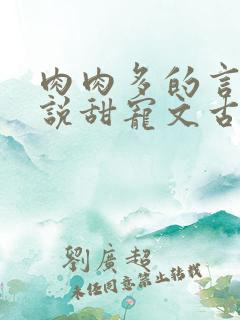 肉肉多的言
說甜寵文古
劉廣超
未經同意禁止轉載